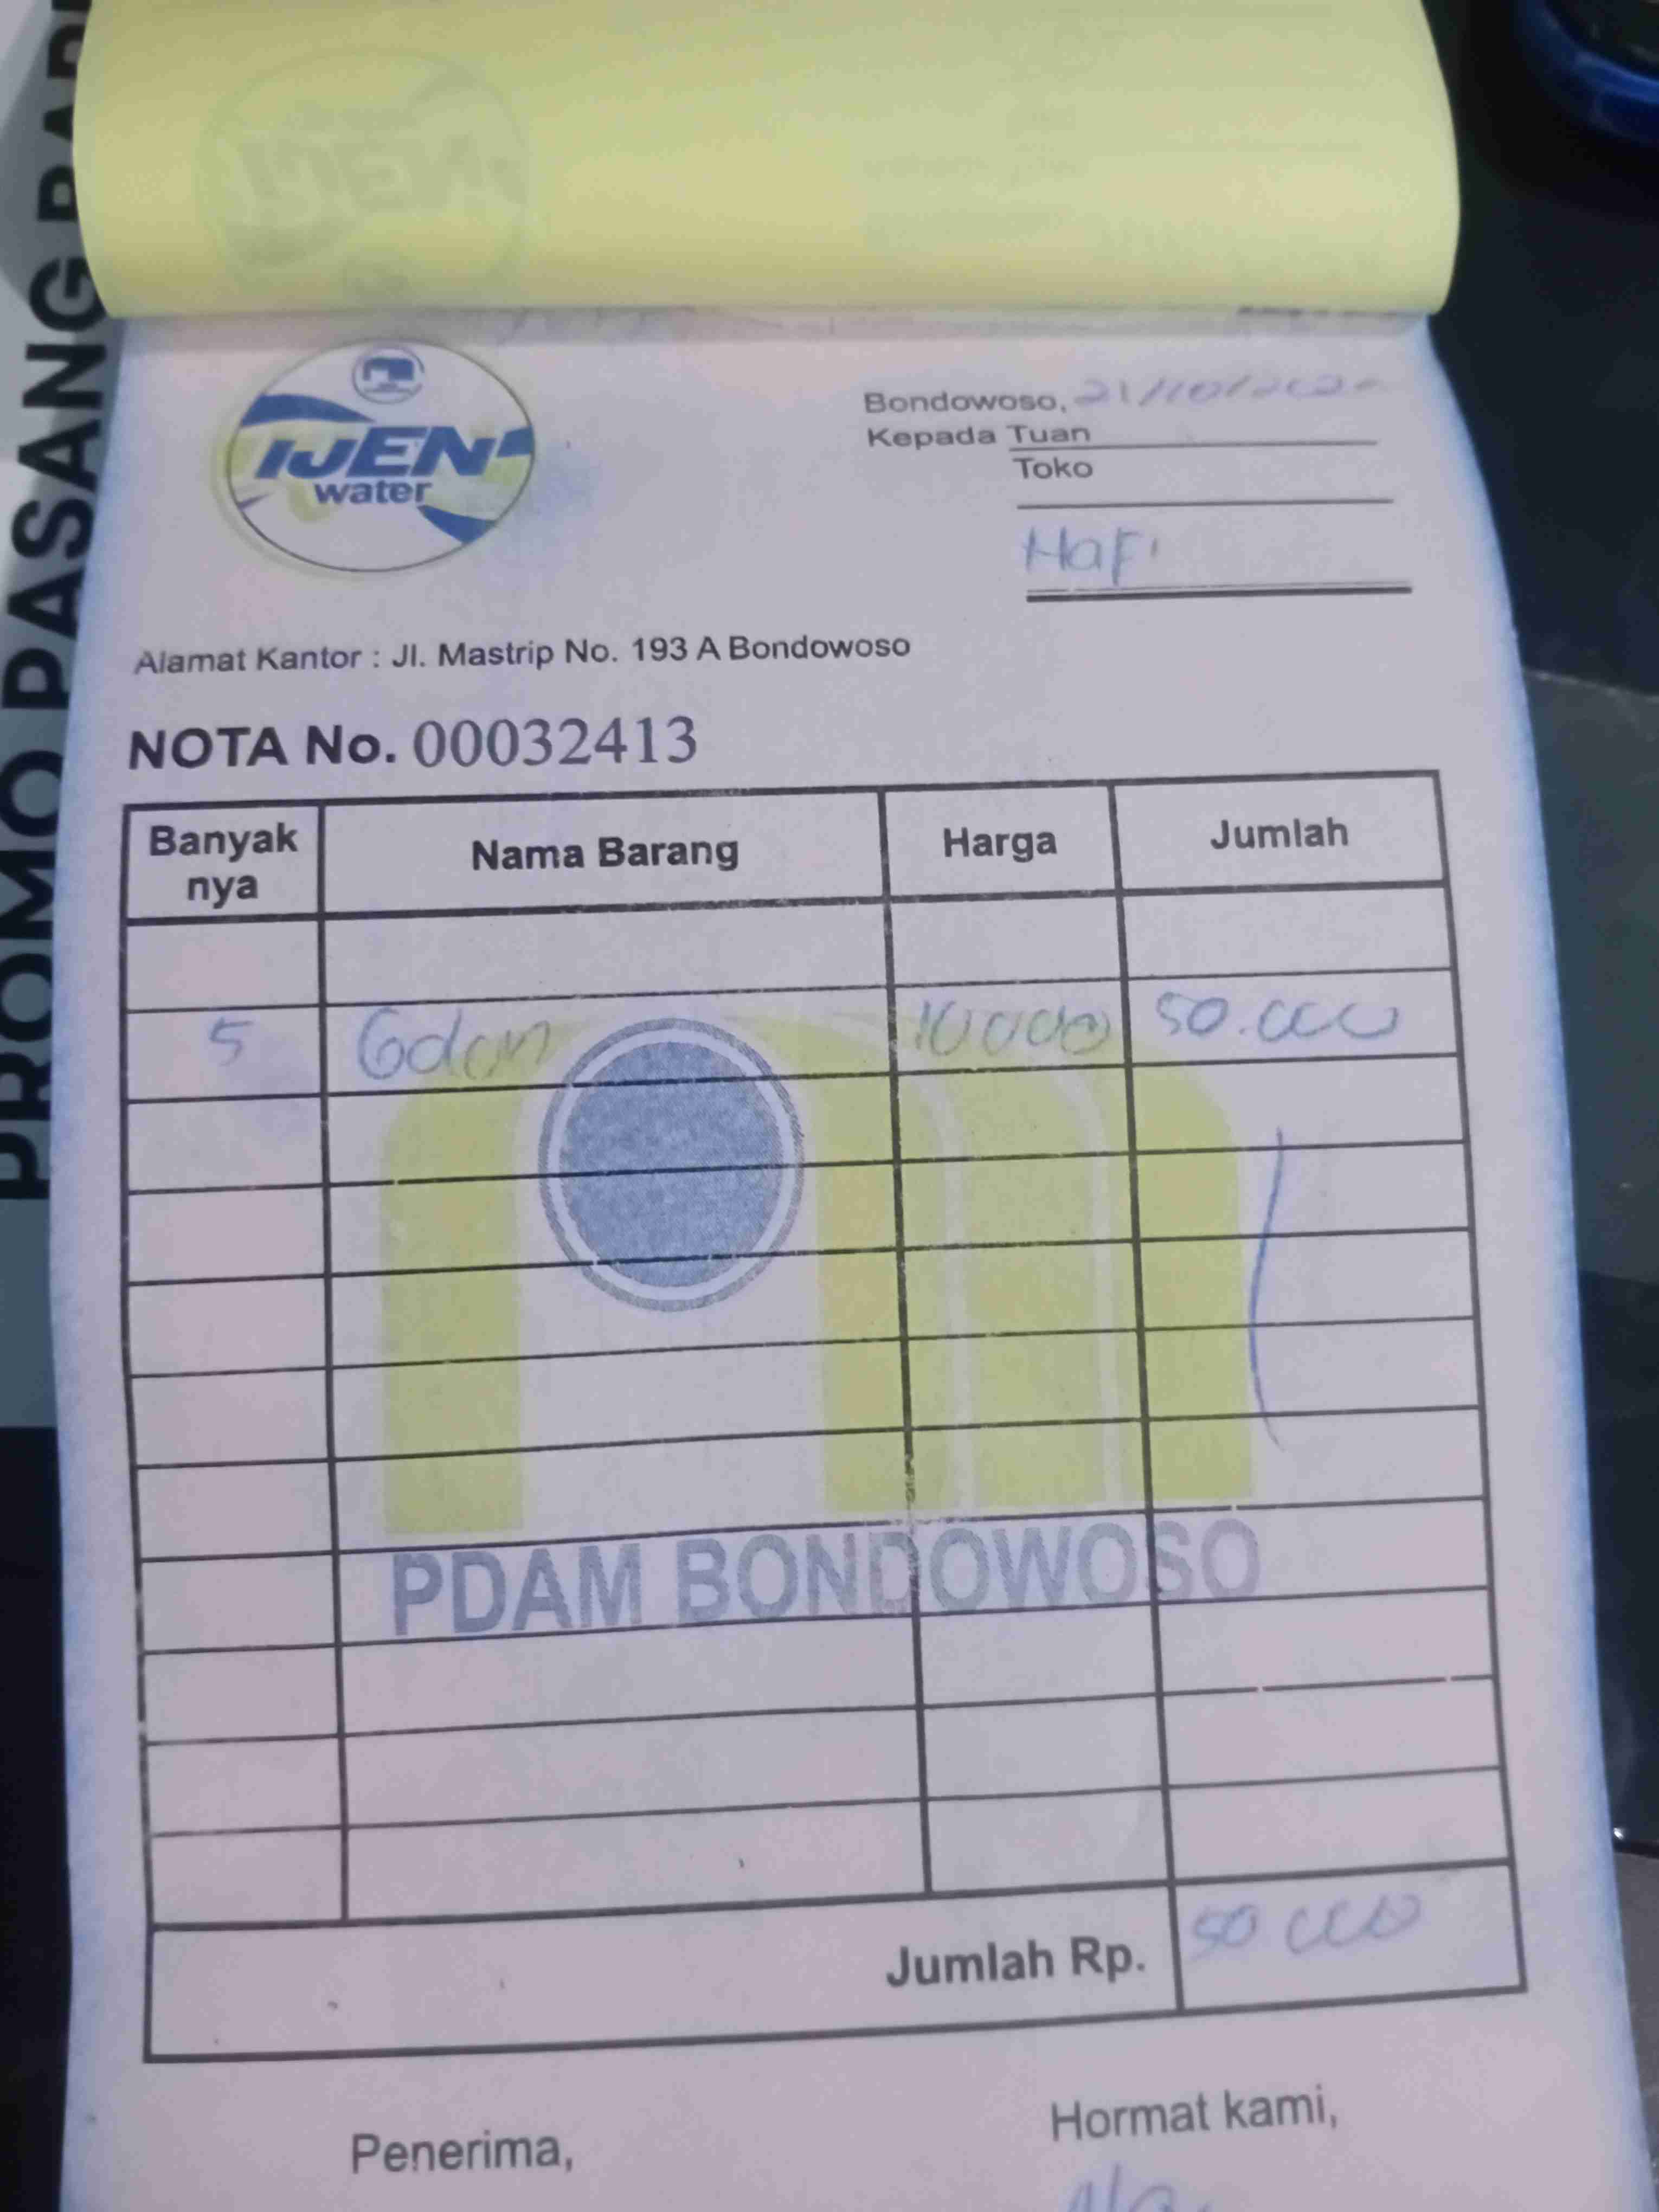 PROMO PASANG BAR
IJEN
water
Bondowoso, 21/10/202
Kepada Tuan
Toko
Hafi
Alamat Kantor : Jl. Mastrip No. 193 A Bondowoso
NOTA No. 00032413
Banyak nya Nama Barang Harga Jumlah
5 Gdon 10000 50.000
PDAM BONDOWOSO
Jumlah Rp. 50 000
Penerima,
Hormat kami,